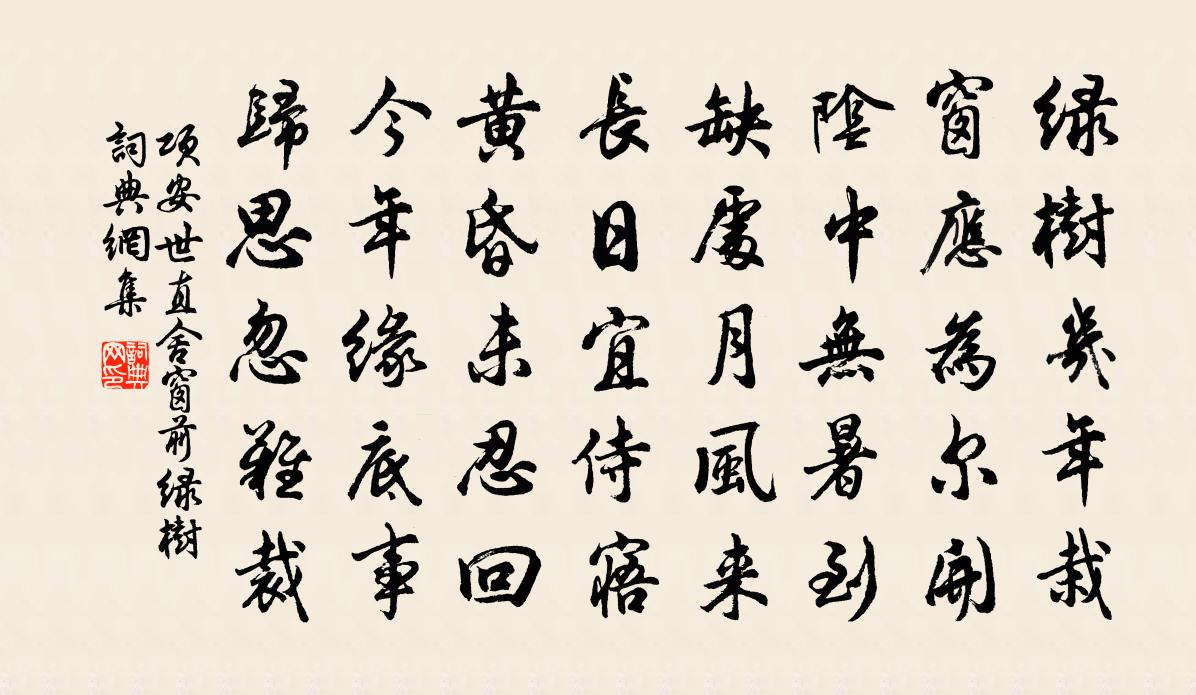 綠樹幾年栽
窗應為尔開
陰中無暑到
缺處月風来
長日宜侍寤
黃昏未忍回
今年緣底事
歸思忽難裁
項安世直舍窗前綠樹
詞典網集
詞典网印